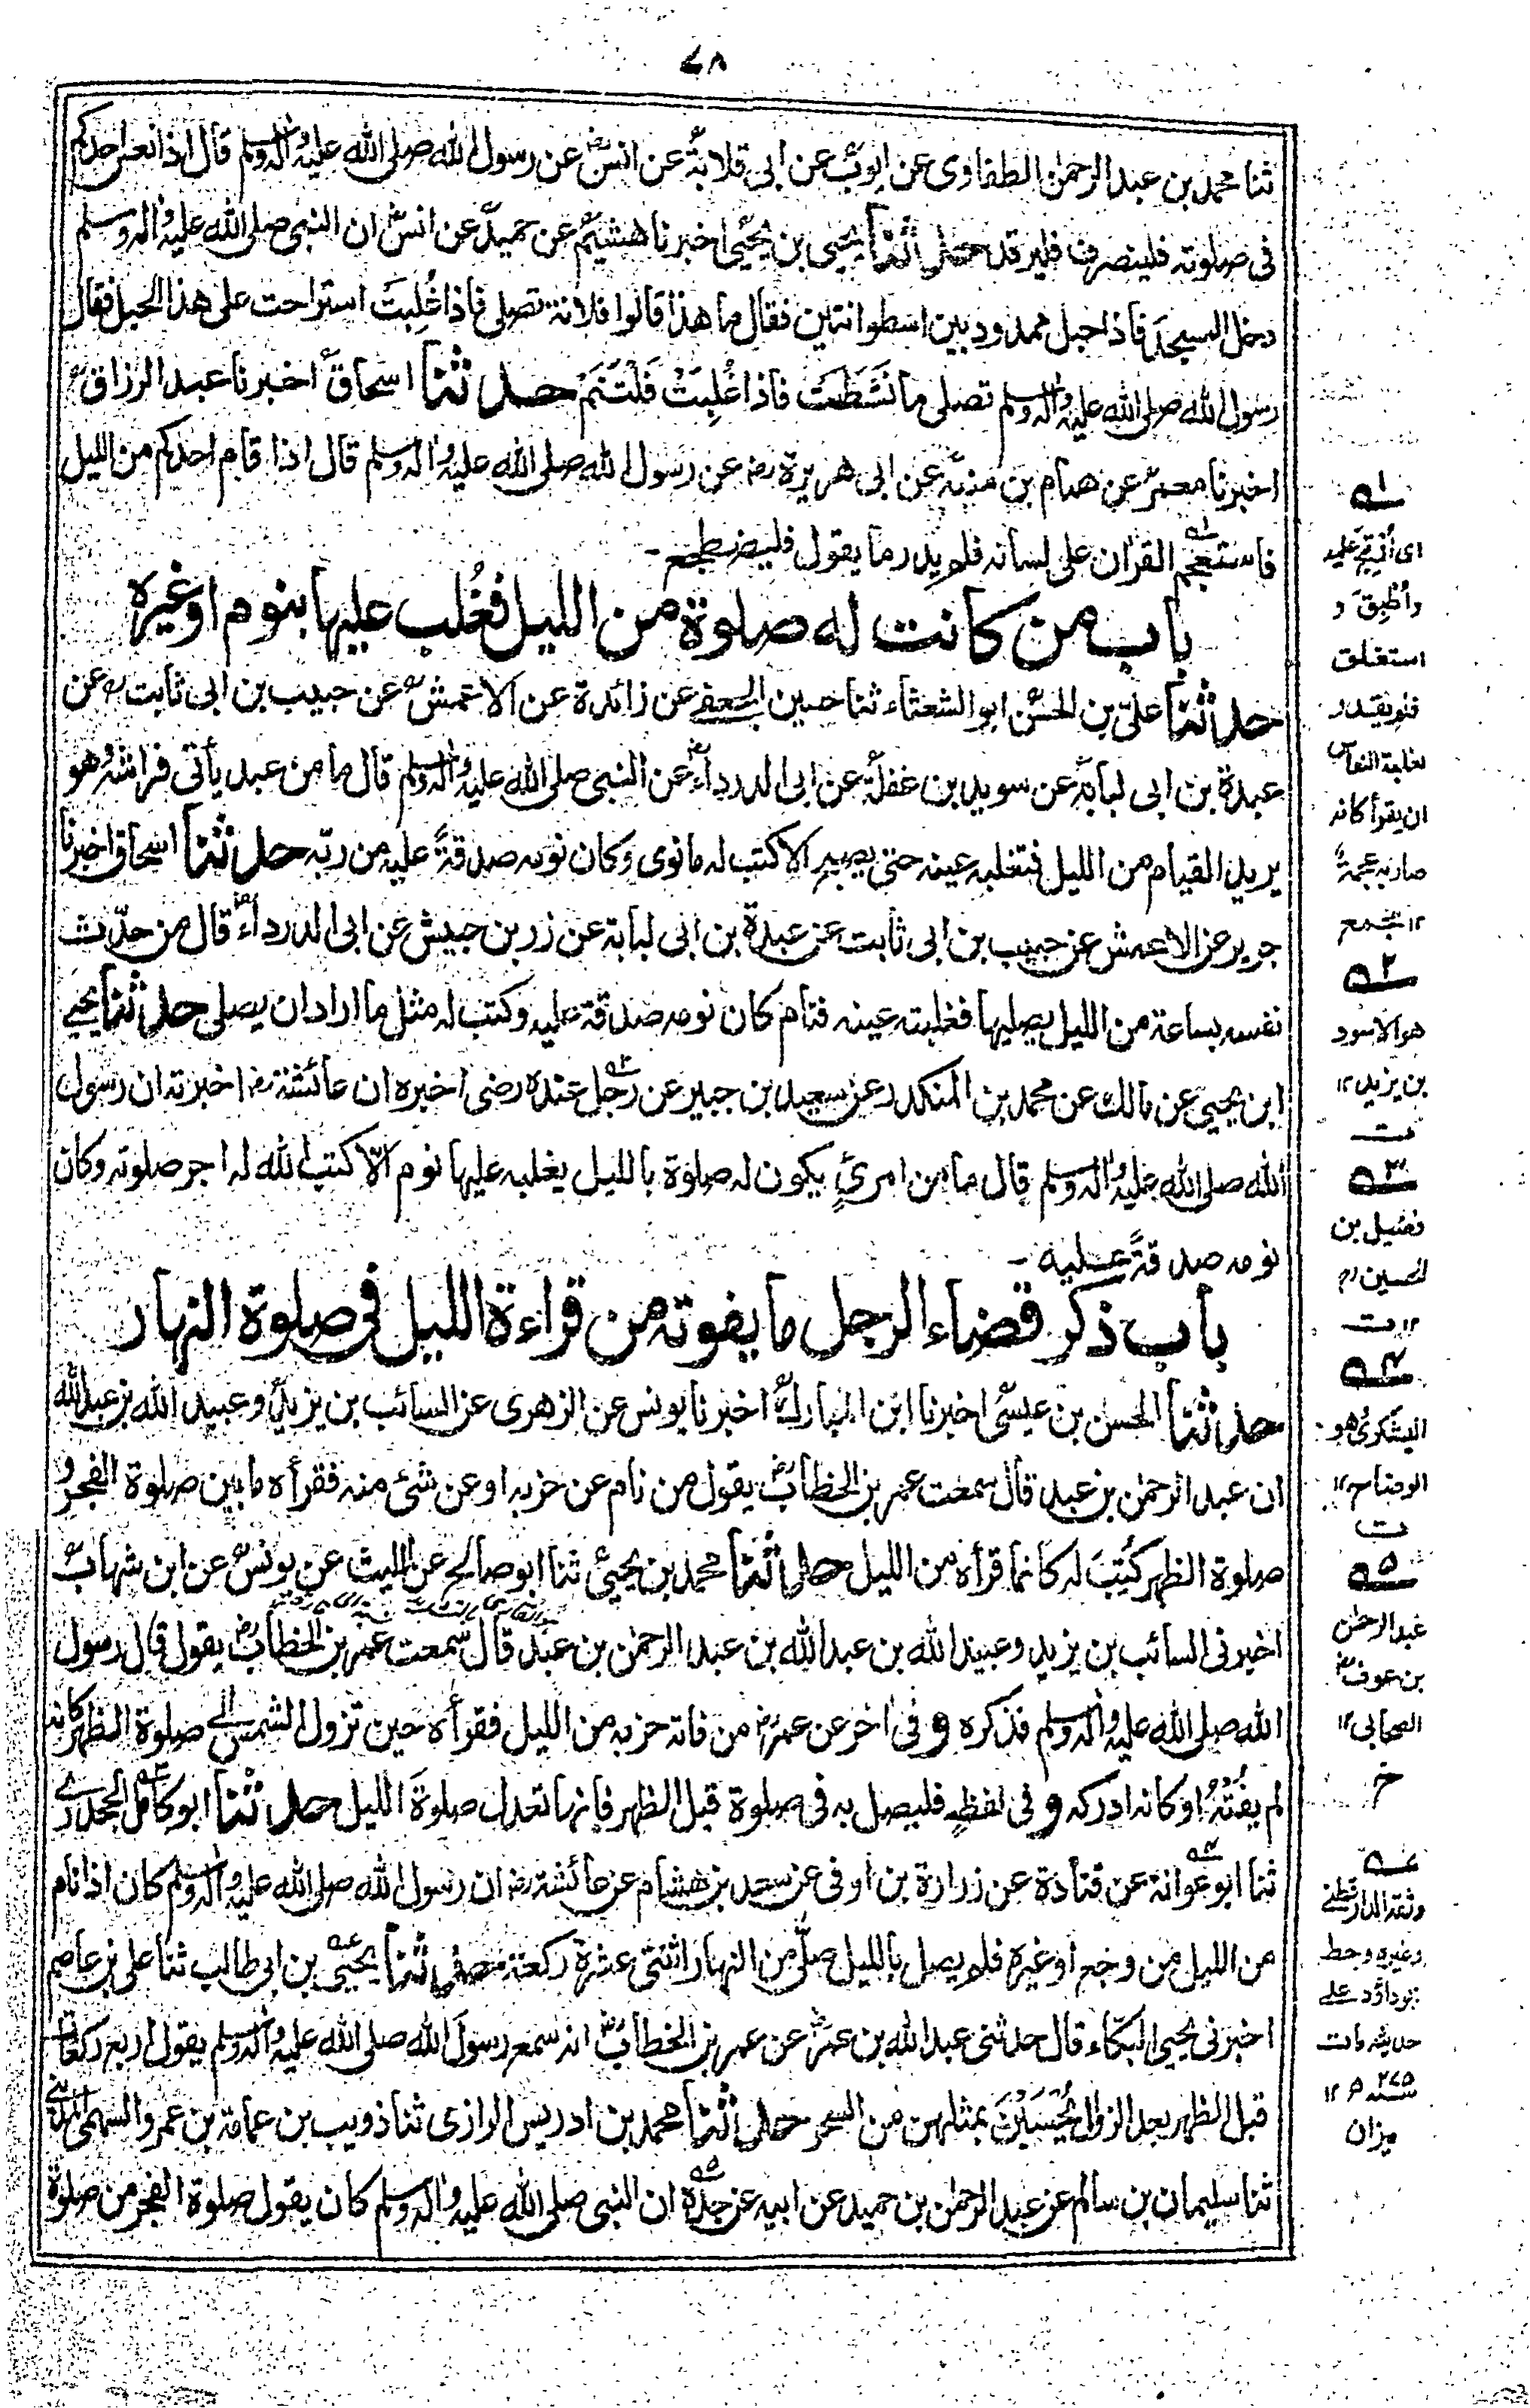 ٧٨
ثنا محمد بن عبد الرحمٰن الطفاوى عن ايوب عن ابى قلابة عن انس عن رسول الله صلى الله عليه واٰله وسلم قال اذا نعس احدكم
فى صلوته فلينصرف فليرقد حدثنا يحيى بن يحيى اخبرنا هشيم عن حميد عن انس ان النبى صلى الله عليه واٰله وسلم
دخل المسجد فاذا حبل ممدود بين اسطوانتين فقال ما هذا قالوا فلانة تصلى فاذا غُلِبَت استراحت على هذا الحبل فقال
رسول الله صلى الله عليه واٰله وسلم تصلى ما نَشَطَت فاذا غُلِبَتْ فَلْتَنَمْ حدثنا اسحاق اخبرنا عبد الرزاق
اخبرنا معمر عن همام بن منبه عن ابى هريرة رض عن رسول الله صلى الله عليه واٰله وسلم قال اذا قام احدكم من الليل
فاستعجم القراٰن على لسانه فلم يدر ما يقول فليضطجع -
باب من كانت له صلوة من الليل فغُلب عليها بنوم او غيره
حدثنا على بن الحسن ابو الشعثاء ثنا حسين الجعفے عن زائدة عن الاعمش عن حبيب بن ابى ثابت عن
عبدة بن ابى لبابة عن سويد بن غفلة عن ابى الدرداء عن النبى صلى الله عليه واٰله وسلم قال ما من عبد يأتى فراشه هو
يريد القيام من الليل فتغلبه عينه حتى يصبح الا كتب له ما نوى وكان نومه صدقةً عليه من ربّه حدثنا اسحاق اخبرنا
جرير عن الاعمش عن حبيب بن ابى ثابت عن عبدة بن ابى لبابة عن زر بن حبيش عن ابى الدرداء قال من حدّث
نفسه بساعة من الليل يصليها فغلبته عينه فنام كان نومه صدقة عليه وكتب له مثل ما اراد ان يصلى حدثنا يحيے
ابن يحيى عن مالك عن محمد بن المنكدر عن سعيد بن جبير عن رجل عنده رضى اخبره ان عائشة رض اخبرته ان رسول
الله صلى الله عليه واٰله وسلم قال ما من امرئٍ يكون له صلوة بالليل يغلبه عليها نوم الّا كتب الله له اجر صلوته وكان
نومه صدقةً عليه -
باب ذكر قضاء الرجل ما يفوته من قراءة الليل فى صلوة النهار
حدثنا الحسن بن عيسى اخبرنا ابن المبارك اخبرنا يونس عن الزهرى عن السائب بن يزيد وعبيد الله بن عبد الله
ان عبد الرحمٰن بن عبد قال سمعت عمر بن الخطاب يقول من نام عن حزبه او عن شئ منه فقرأه ما بين صلوة الفجر و
صلوة الظهر كُتِبَ له كانما قرأه من الليل حدثنا محمد بن يحيى ثنا ابو صالح عن الليث عن يونس عن ابن شهاب
اخبرنى السائب بن يزيد وعبيد الله بن عبد الله بن عبد الرحمٰن بن عبد قال سمعت عمر بن الخطاب يقول قال رسول
الله صلى الله عليه واٰله وسلم فذكره و فى اٰخر عن عمر من فاته حزبه من الليل فقرأه حين تزول الشمس الى صلوة الظهر كانه
لم يفُتْهُ او كانه ادركه و فى لفظٍ فليصل به فى صلوة قبل الظهر فانها تعدل صلوةَ الليل حدثنا ابو كامل الجحدرے
ثنا ابو عوانة عن قتادة عن زرارة بن اوفى عن سعد بن هشام عن عائشة رض ان رسول الله صلى الله عليه واٰله وسلم كان اذا نام
من الليل من وجع او غيره فلم يصل بالليل صلّى من النهار اثنتى عشرة ركعة حدثنا يحيى بن ابى طالب ثنا على بن عاصم
اخبرنى يحيى البكّاء قال حدثنى عبد الله بن عمر عن عمر بن الخطاب انه سمع رسول الله صلى الله عليه واٰله وسلم يقول اربع ركعات
قبل الظهر بعد الزوال يُحْسَبْنَ بمثلهن من السحر حدثنا محمد بن ادريس الرازى ثنا ذويب بن عمامة بن عمرو السهمى
ثنا سليمان بن سالم عن عبد الرحمٰن بن حميد عن ابيه عن جده ان النبى صلى الله عليه واٰله وسلم كان يقول صلوة الفجر من صلوة
١ه
اى اُرْتِجَ عليه
واُطْبِقَ و
استغلق
فلم يقدر
لغلبة النعاس
ان يقرأ كانه
صار به عجمة
١٢ مجمع
٢ه
هو الاسود
بن يزيد ١٢
ت
٣ه
فضيل بن
الحسين
١٢ ت
٤ه
اليشكرى هو
الوضاح ١٢
ت
٥ه
عبد الرحمٰن
بن عوف
الصحابى ١٢
خ
عه
وثقه الدارقطنے
وغيره وخط
ابو داؤد على
حديثه مات
سنه ٢٧٥ه ١٢
ميزان